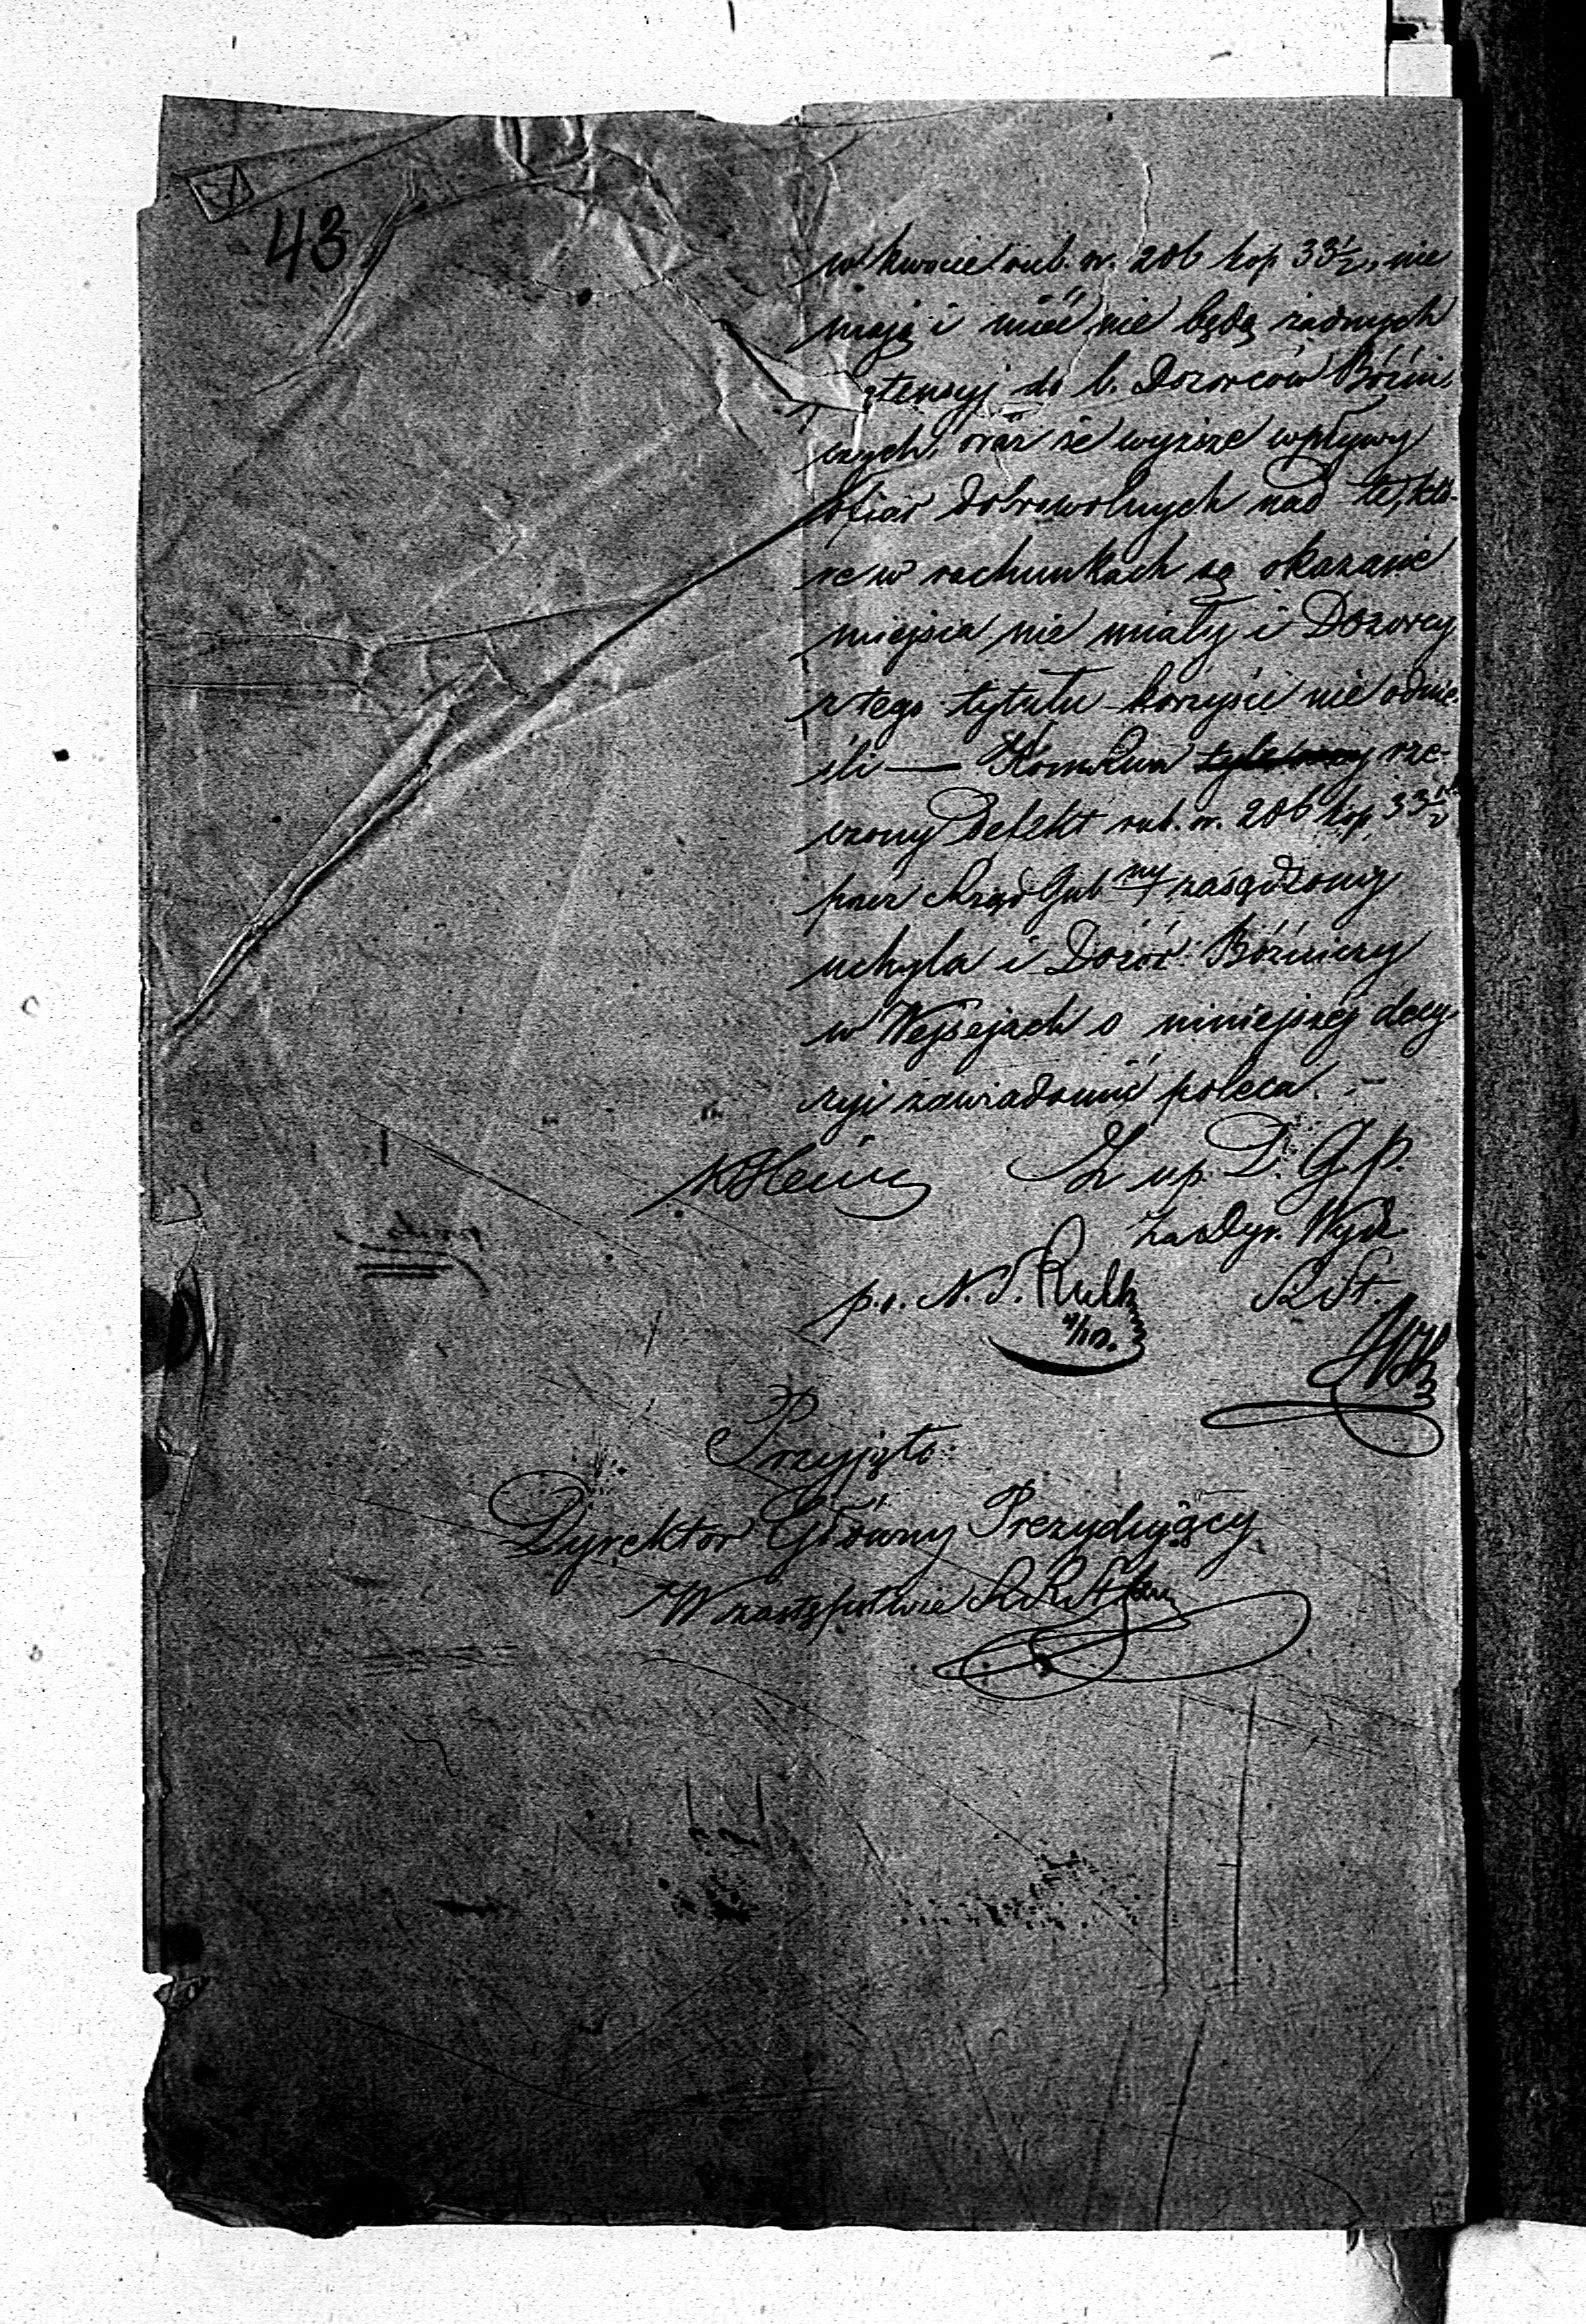 43
w kwocie rub. sr. 206 kop 33 1/2, nie
mają i mieć nie będą żadnych
tensyj do b. Dozorców Bóźni-
czych, oraz że wyższe wpływy
ofiar dobrowolnych nad te, któ-
re w rachunkach są okazane
miejsca nie miały i Dozorcy
z tego tytułu korzyści nie odnie-
śli — Kom. Rząd. rze-
czony Defekt rub. sr. 206 kop 33 1/2
przez Rząd Gub ny zasądzony
uchyla i Dozór Bóźniczy
w Wejsejach o niniejszej decy-
zyi zawiadomić poleca. —
Z up. D. G. P.
Za Dyr. Wydz.
p.o. N. S.
R. St.
Przyjęto:
Dyrektor Główny Prezydujący
W zastępstwie R. R. St.